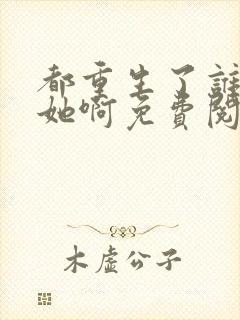 都重生了誰
她啊免費閱
木虛公子